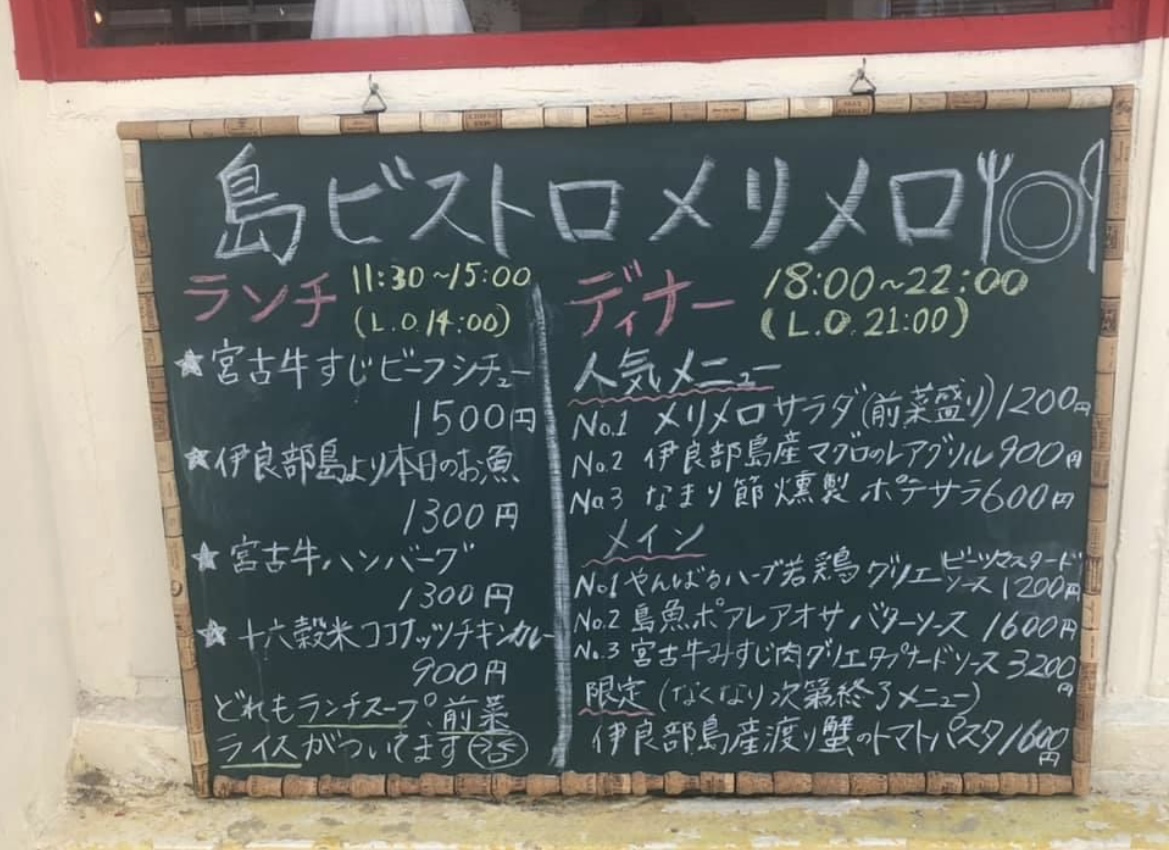 島ビストロメリメロ
ランチ 11:30～15:00
(L.O.14:00)
★宮古牛すじビーフシチュー
1500円
★伊良部島より本日のお魚
1300円
★宮古牛ハンバーグ
1300円
★十六穀米ココナッツチキンカレー
900円
どれもランチスープ、前菜
ライスがついてます
ディナー 18:00～22:00
(L.O.21:00)
人気メニュー
No.1 メリメロサラダ(前菜盛り)1200円
No.2 伊良部島産マグロのレアグリル900円
No.3 なまり節燻製ポテサラ600円
メイン
No.1やんばるハーブ若鶏グリエビーツマスタードソース1200円
No.2 島魚ポアレアオサバターソース 1600円
No.3 宮古牛みすじ肉グリエタプナードソース3200円
限定(なくなり次第終了メニュー)
伊良部島産渡り蟹のトマトパスタ1600円